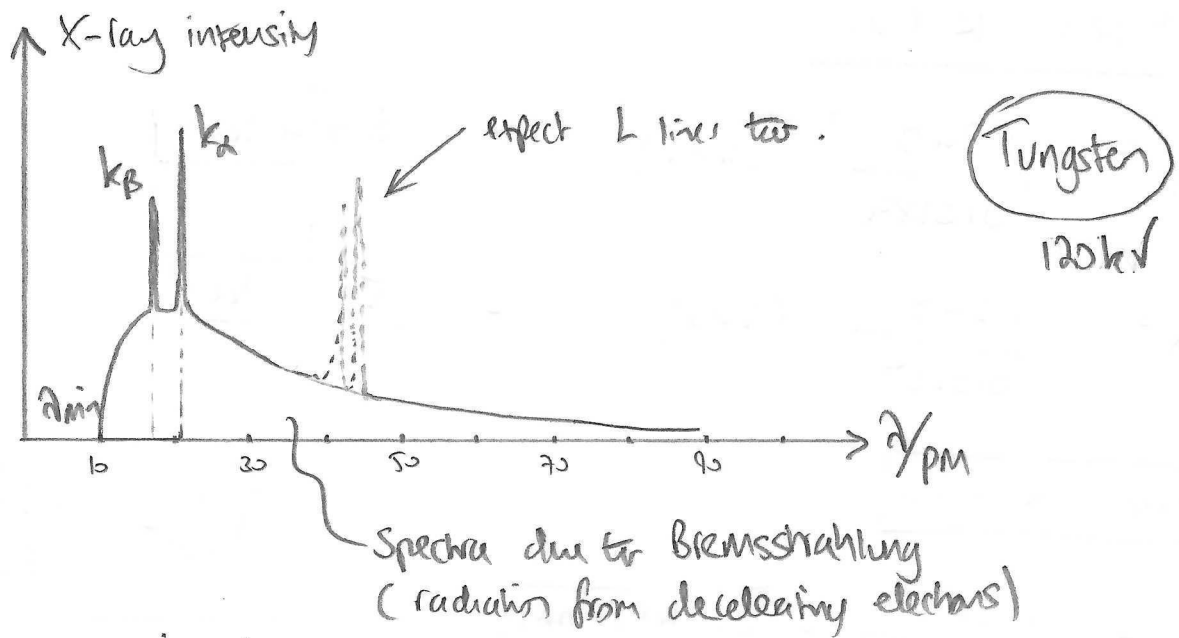 X-ray intensity
kα
kβ
expect L lines too.
Tungsten
120kV
λmin
10 30 50 70 90
λ/pm
Spectra due to Bremsstrahlung
(radiation from decelerating electrons)